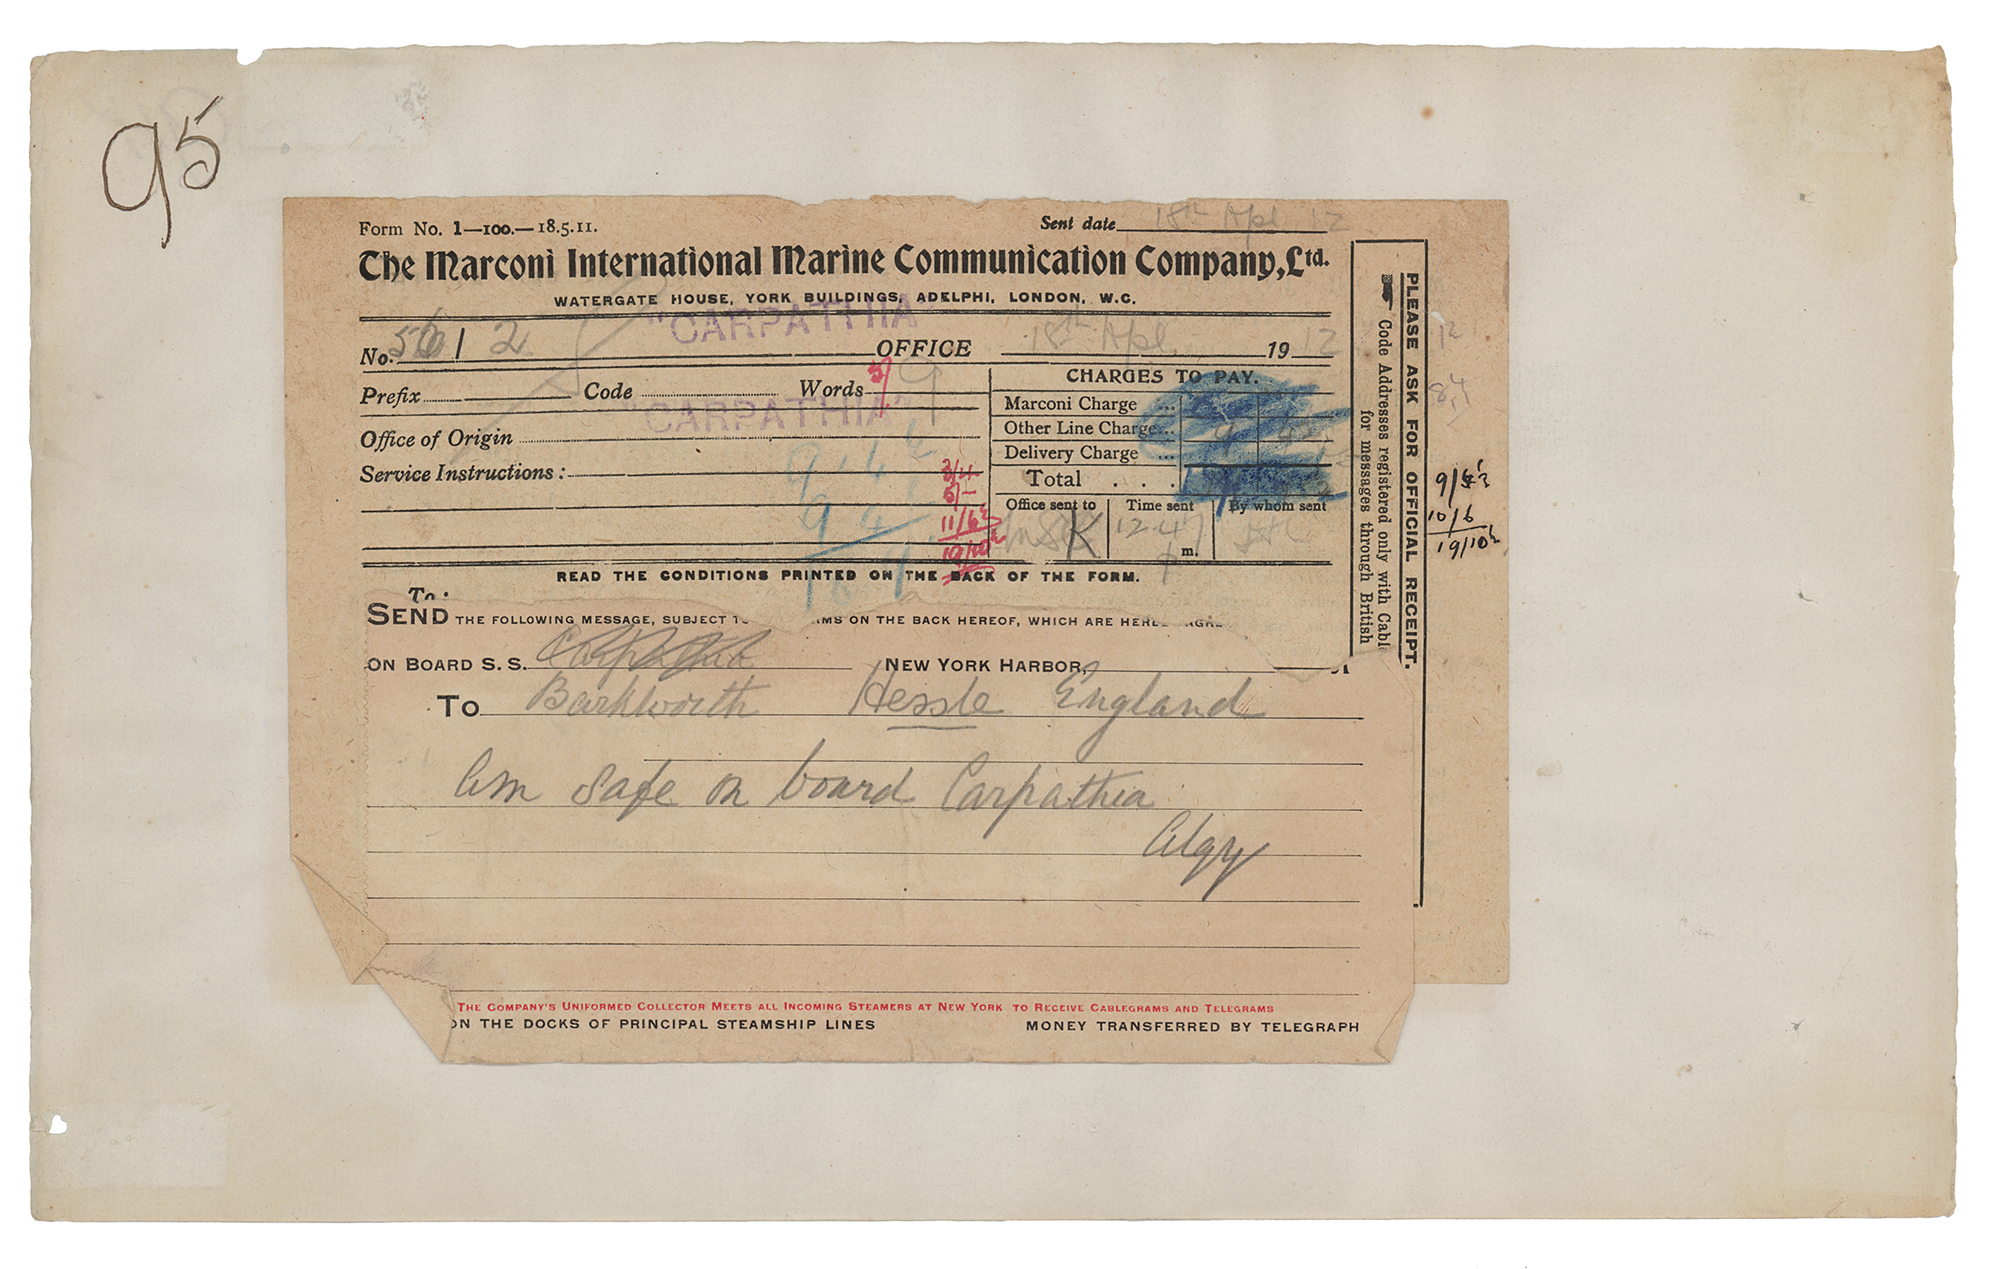 95
Form No. 1—100.—18.5.11.
Sent date 18th Apl 12
The Marconi International Marine Communication Company, Ltd.
WATERGATE HOUSE, YORK BUILDINGS, ADELPHI, LONDON, W.C.
"CARPATHIA"
No. OFFICE 18th Apl 1912
Prefix Code Words
"CARPATHIA"
Office of Origin
Service Instructions:
3/4
5/-
11/6½
19/10½
CHARGES TO PAY.
Marconi Charge ...
Other Line Charge ...
Delivery Charge ...
Total . . .
Office sent to
Time sent
By whom sent
12.47
m.
READ THE CONDITIONS PRINTED ON THE BACK OF THE FORM.
To:
PLEASE ASK FOR OFFICIAL RECEIPT.
Code Addresses registered only with Cabl
for messages through British
9/4½
10/6
19/10½
SEND THE FOLLOWING MESSAGE, SUBJECT ON THE BACK HEREOF, WHICH ARE
ON BOARD S. S. Carpathia NEW YORK HARBOR,
TO Barkworth Hessle England
Am safe on board Carpathia
Algy
THE COMPANY'S UNIFORMED COLLECTOR MEETS ALL INCOMING STEAMERS AT NEW YORK TO RECEIVE CABLEGRAMS AND TELEGRAMS
ON THE DOCKS OF PRINCIPAL STEAMSHIP LINES MONEY TRANSFERRED BY TELEGRAPH